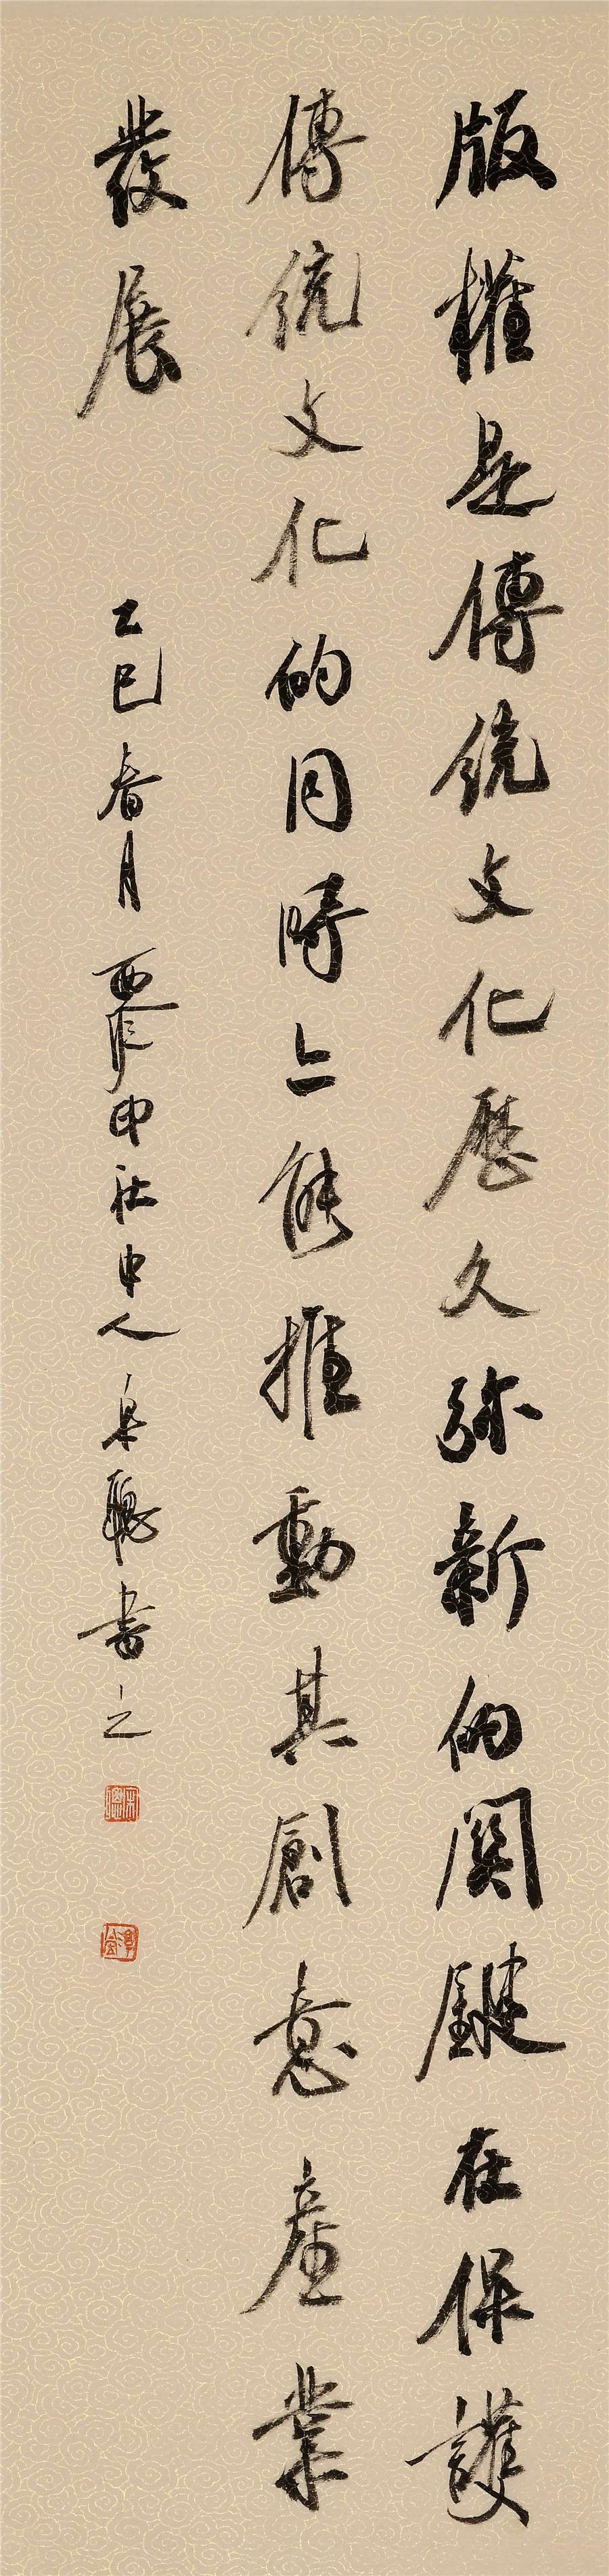 版權是傳統文化歷久弥新的関鍵在保護
傳統文化的同時亦能推動其創意産業
發展
乙巳春月西泠印社中人書之